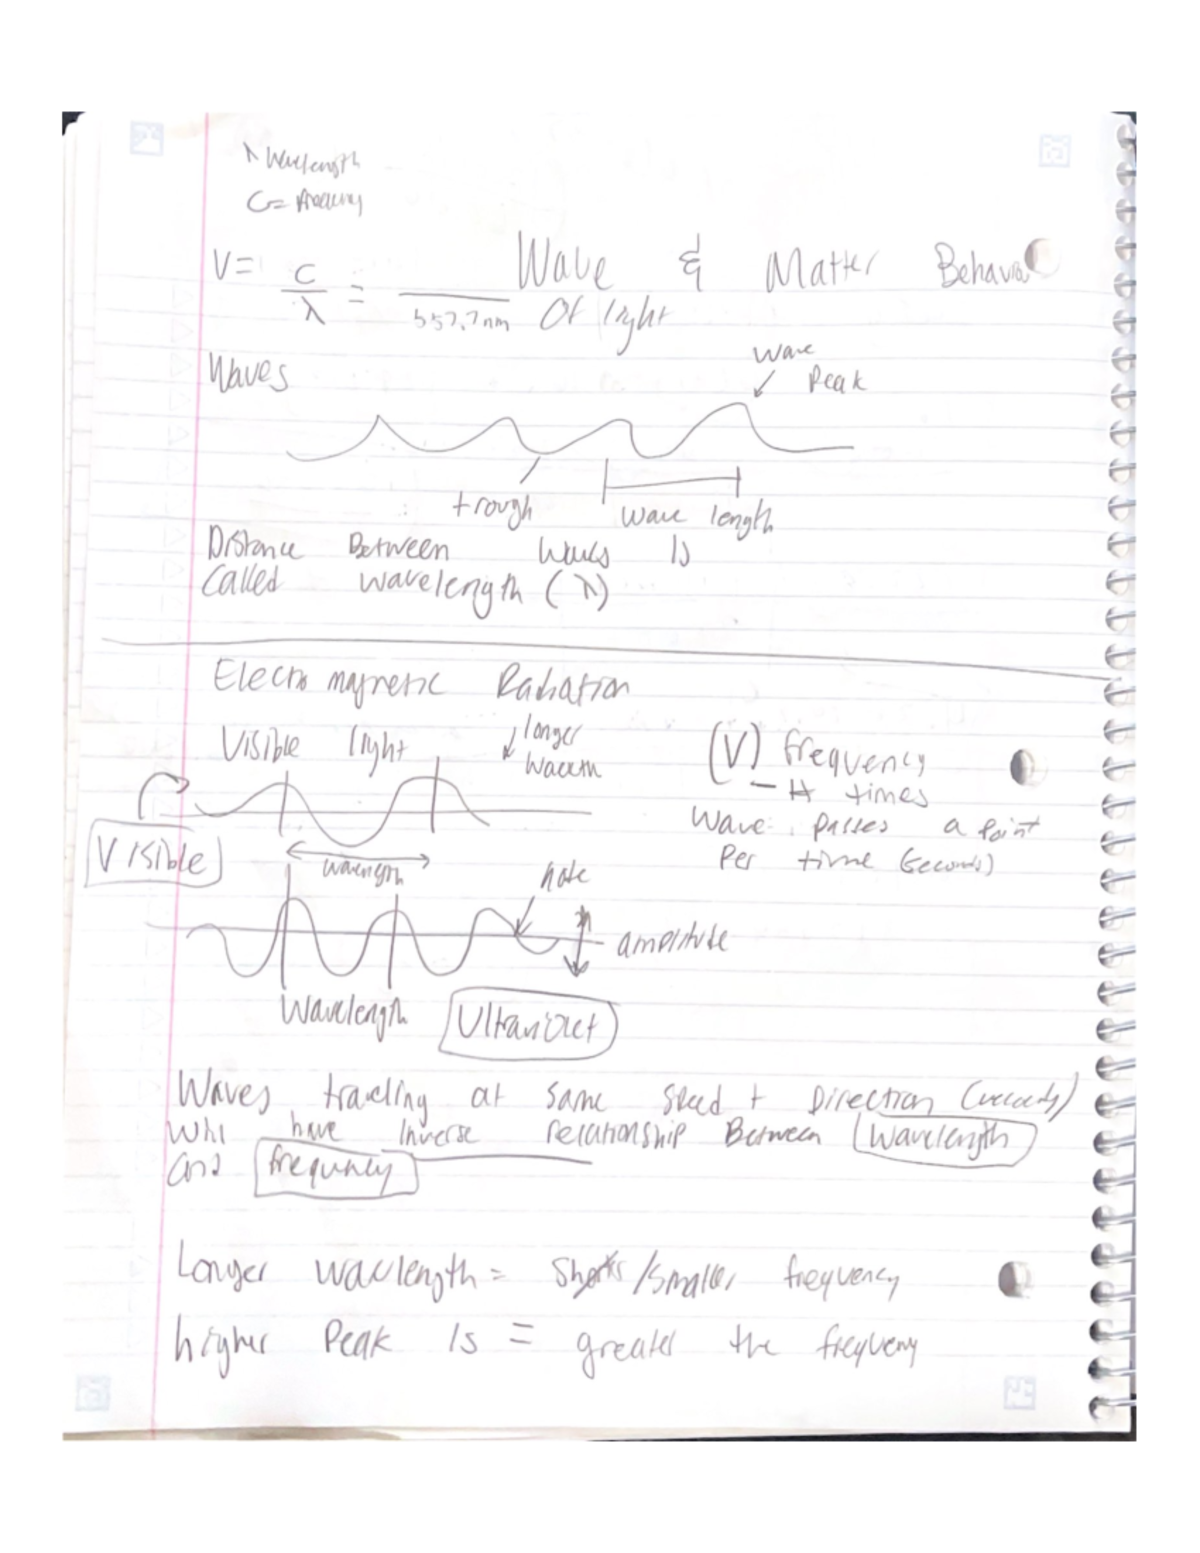 λ Wavelength
C= frequency
V= C/λ = ____/557.7nm
Wave & Matter Behavior
Of light
Waves
Wave
Peak
trough
wave length
Distance Between waves Is
Called wavelength (λ)
Electro magnetic Radiation
Visible light
longer
(V) frequency
- # times
Wave passes a point
Per time (seconds)
Visible
node
amplitude
Wavelength
Ultraviolet
Waves traveling at same speed + Direction
Will have Inverse relationship Between Wavelength
and frequency
Longer wavlength = /smaller frequency
higher Peak Is = greater the frequency